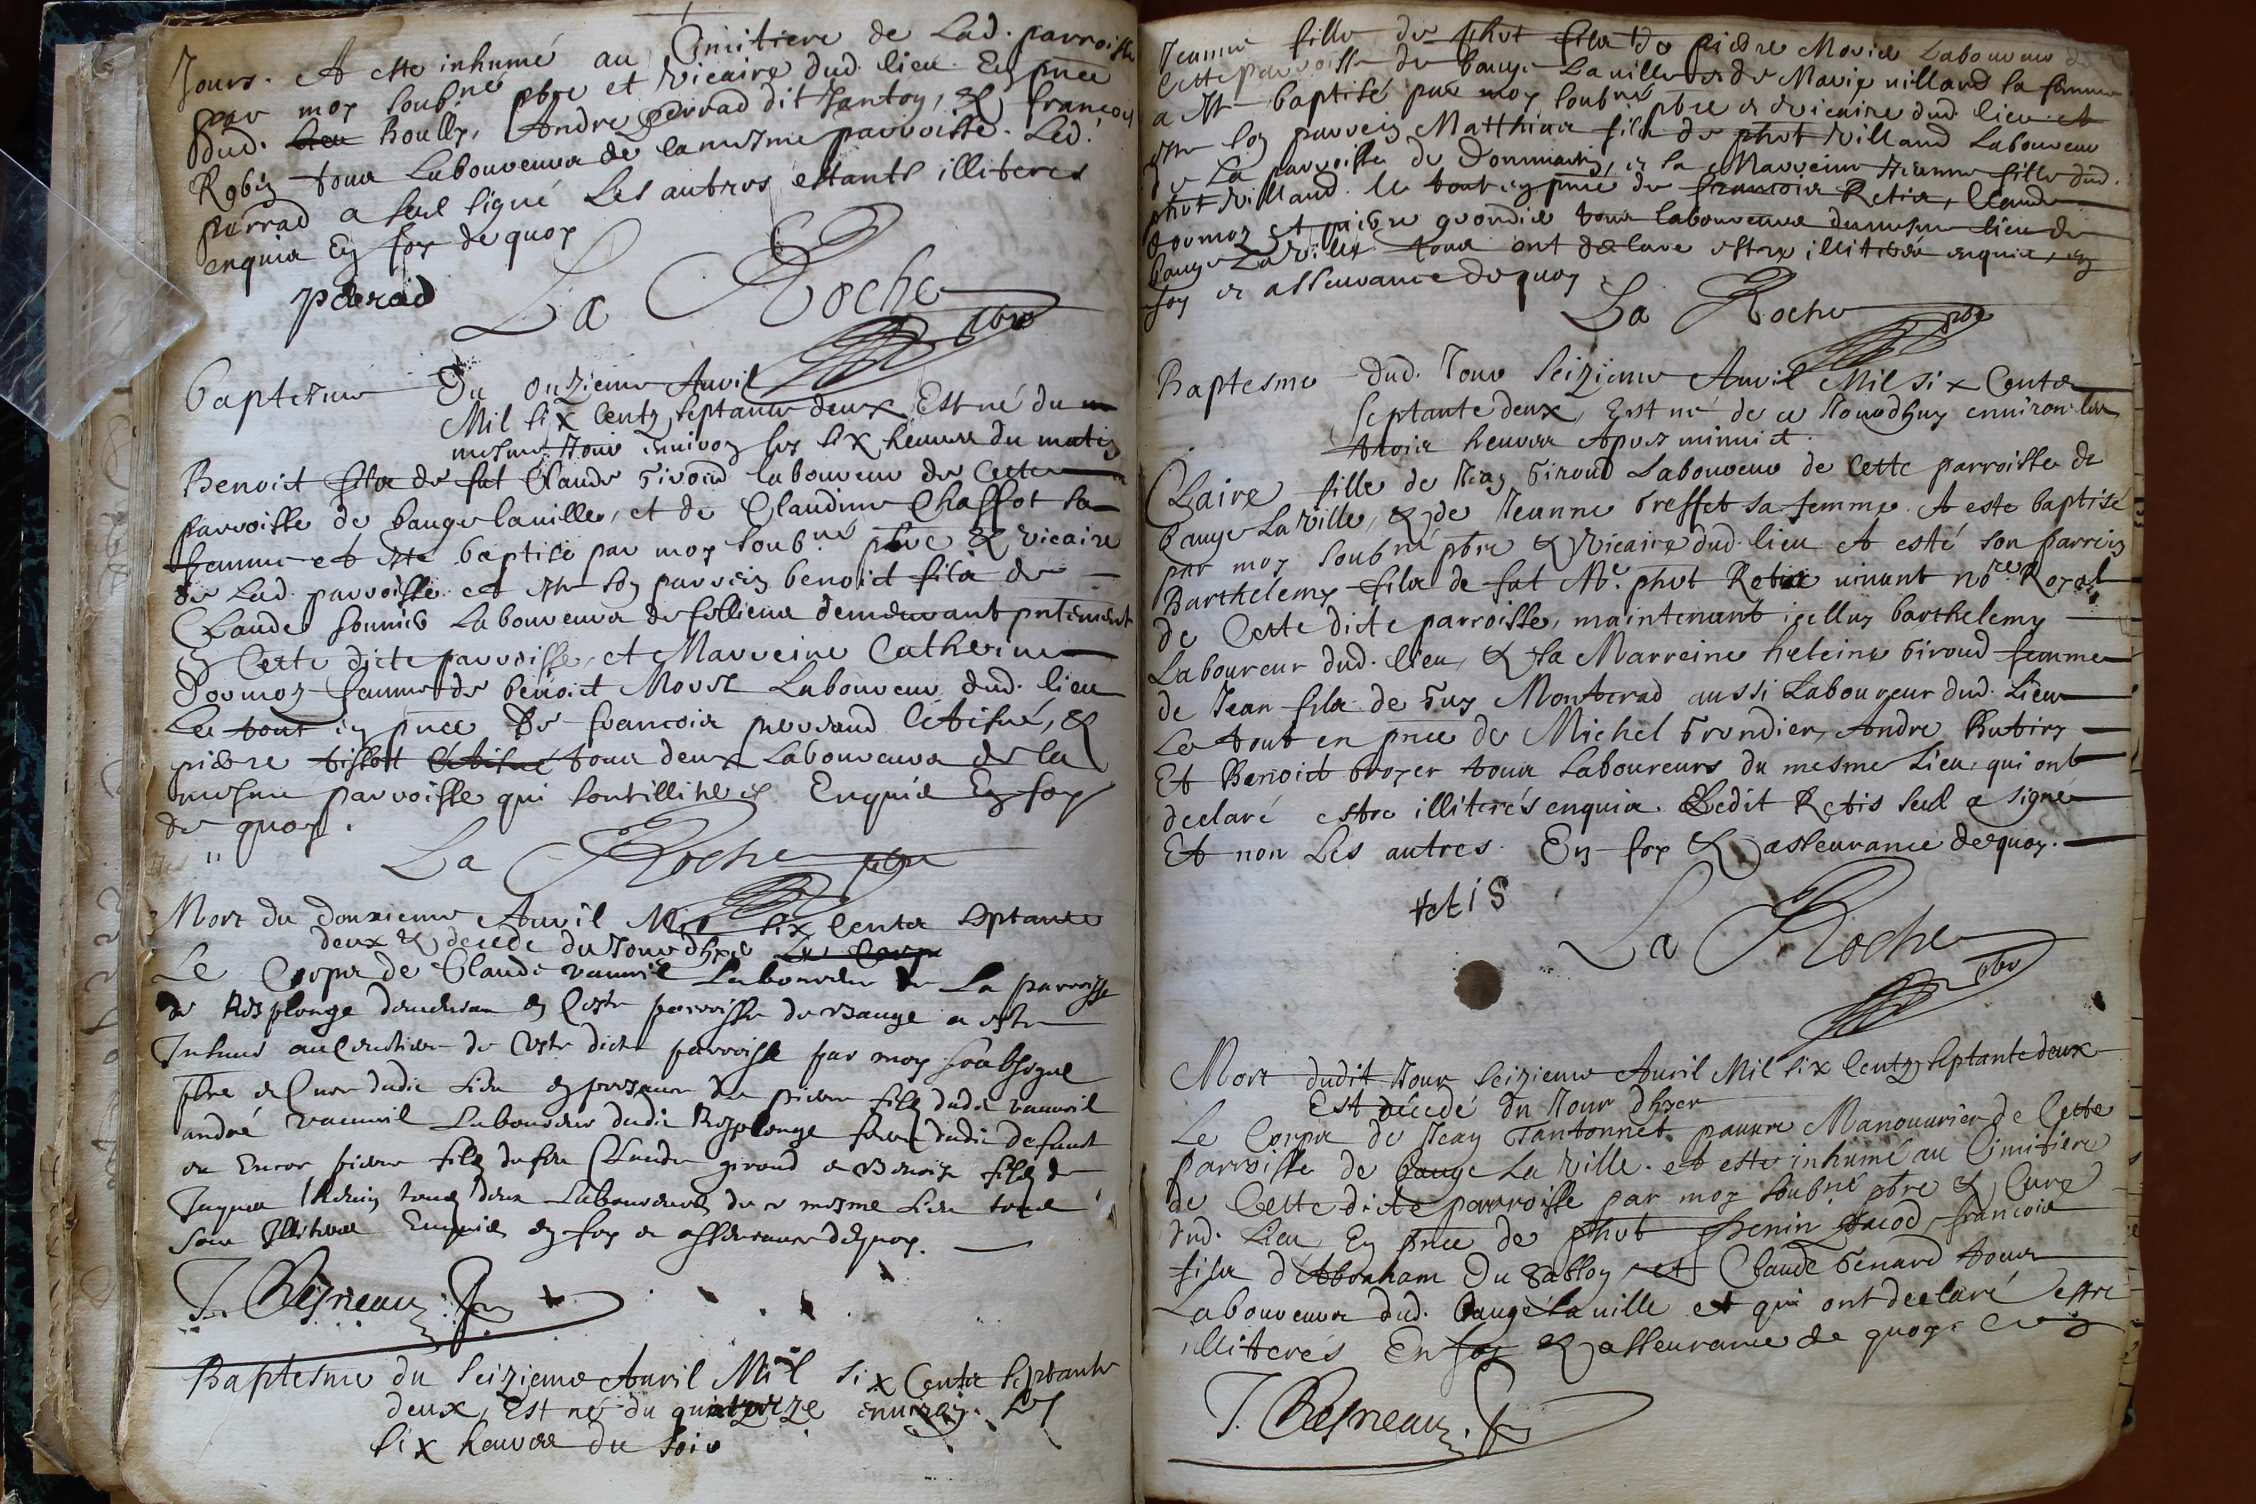 Jours. Et este inhumé au Cimitiere de Lad. parroisse
par moy soubné pbre et vicaire dud. lieu. En pnce
dud. lieu Boully, Andre perrad dit Jantoy, & françois
Robin tous Laboureurs de la mesme parroisse. Led.
perrad a seul signé Les autres estants illiteres
enquis En foy de quoy
perrad
La Roche pbre
baptesme Du onzieme Auril
Mil six Centz septante deux Est né du
mesme Jour enuiron les six heures du matin
Benoict fils de fut Claude Giroud laboureur de Cette
parroisse de bauge lauille, et de Claudine Chaffot sa
femme et este baptisé par moy soubné pbre & vicaire
de Lad. parroisse et este son parrein benoict fils de
Claude sounié Laboureur de demeurant pntement
en Cette dicte parroisse, et Marreine Catherine
Dormoz femme de benoict Morel Laboureur dud. lieu
Le tout en pnce De francois perraud &
pierre tissot tous deux Laboureurs de la
mesme parroisse qui sont illiteres Enquis En foy
de quoy.
La Roche pbre
Mort du douzieme Auril Mil six Centz septante
deux & decede du Jour dhyer Le Corps
Le Corps de Claude vauuril Laboureur de La parroisse
de Replonge demeurant en Ceste parroisse de Bauge a este
Inhumé au Cimetiere de Ceste dicte parroisse par moy soubsigné
pbre et Cure dudit Lieu en presance de pierre filz dudit vauuril
andré vauuril Laboureur dudit Replonge frere dudit defunct
et Encor pierre filz de feu Claude giroud et Benoist filz de
Jaques tous deux Laboureurs de ce mesme Lieu tous
sont Illiteres Enquis en foy et asseurance dequoy.
J. Chesneau
Baptesme du seizieme Auril Mil six Centz septante
deux, Est né du quinze enuiron les
six heures du soir
Jeanne fille de phot fils de pierre Morie Laboureur de
Cette parroisse de bauge Lauille et de Marie villard sa femme
a este baptisé par moy soubné pbre et vicaire dud. lieu et
este son parrein Matthieu fils de phot villard Laboureur
de La parroisse de Dommartin, et sa Marreine Jeanne fille dud.
phot villard. Le tout en pnce de francois Retis, Claude
dormoz et pierre grondie tous laboureurs du mesme lieu de
bauge La ville tous ont declare estre illiteres enquis, en
foy et asseurance de quoy
La Roche pbre
Baptesme dud. Jour seizieme Auril Mil six Centz
septante deux, Est né de ce Jourdhuy enuiron les
trois heures Apres minuict.
Claire fille de Jean Giroud Laboureur de Cette parroisse de
bauge La Ville, & de Jeanne breffet sa femme. Et este baptisé
par moy soubné pbre & Vicaire dud. lieu Et esté son parrein
Barthelemy fils de fut Me. phot Retis viuant nore. Royal
de Cette dicte parroisse, maintenant icelluy barthelemy
Laboureur dud. lieu, & sa Marreine heleine Giroud femme
de Jean fils de Guy Monterad aussi Laboureur dud. Lieu
Le tout en pnce de Michel Grondier, Andre Butiry
Et Benoict broyer tous Laboureurs du mesme Lieu, qui ont
declaré estre illiterés enquis. Ledit Retis seul a signé
Et non Les autres. En foy & asseurance de quoy.
retis
La Roche pbre
Mort dudit Jour seizieme Auril Mil six Centz septante deux
Est décedé du Jour dhyer
Le Corps de Jean Tantonnet pauure Manouurier de Cette
parroisse de bauge La Ville. et este inhumé au Cimitiere
de Cette dicte parroisse par moy soubné pbre & Cure
dud. Lieu En pnce de phot francois
fils d'Abraham Du Sabloy et Claude Genard tous
Laboureurs dud. baugé la uille et qui ont declaré estre
illiterés En foy & asseurance de quoy.
J. Chesneau